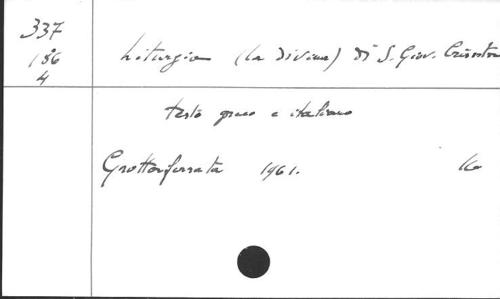 337
186
4
Liturgia (la Divina) di S. Giov. Crisostom
testo greco e italiano
Grottaferrata 1961. 16